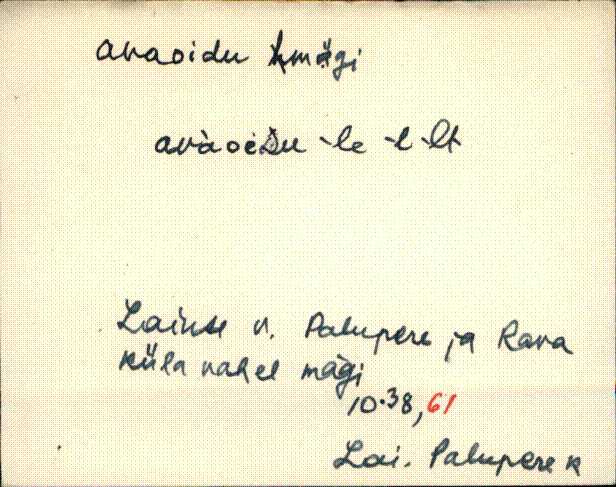 avaoidu kmägi
avàoidu -le -l -lt
Lainse v. Palupere ja Rava
küla vahel mägi
10.38,61
Lai. Palupere k